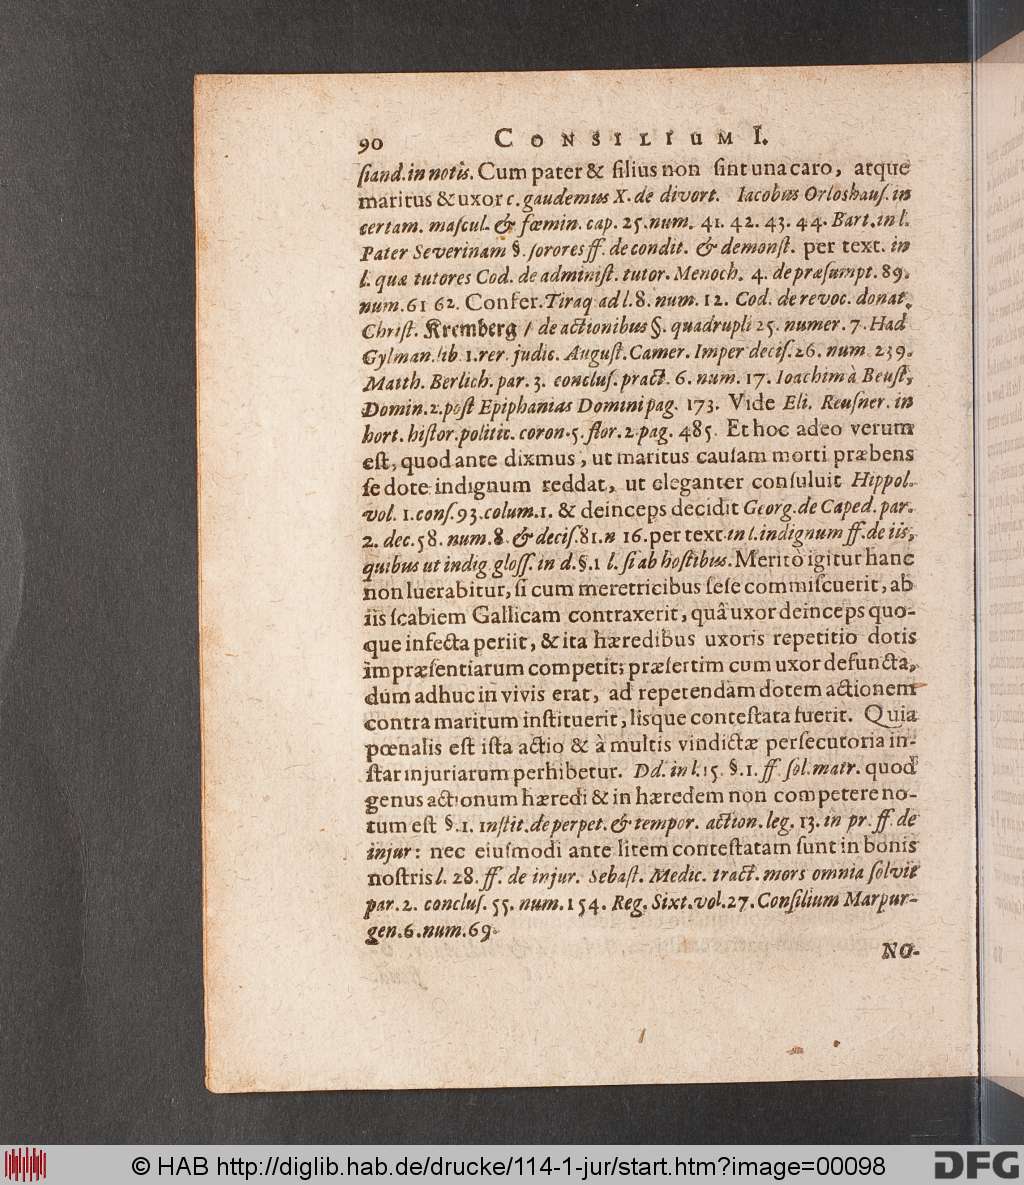 90 CONSILIUM I.
ſiand. in notis. Cum pater & filius non ſint una caro, atque
maritus & uxor c. gaudemus X. de divort. Iacobus Orloshauſ. in
certam. maſcul. & fœmin. cap. 25. num. 41. 42. 43. 44. Bart. in l.
Pater Severinam §. ſorores ff. de condit. & demonſt. per text. in
l. quæ tutores Cod. de adminiſt. tutor. Menoch. 4. de præſumpt. 89.
num. 61 62. Confer. Tiraq ad l. 8. num. 12. Cod. de revoc. donat.
Chriſt. Kremberg / de actionibus §. quadrupli 25. numer. 7. Had
Gylman. lib. 1. rer. judic. Auguſt. Camer. Imper deciſ. 26. num. 239.
Matth. Berlich. par. 3. concluſ. pract. 6. num. 17. Ioachim à Beuſt,
Domin. 2. poſt Epiphanias Domini pag. 173. Vide Eli. Reuſner. in
hort. hiſtor. politic. coron. 5. flor. 2. pag. 485. Et hoc adeo verum
eſt, quod ante dixmus, ut maritus cauſam morti præbens
ſe dote indignum reddat, ut eleganter conſuluit Hippol.
vol. 1. conſ. 93. colum. 1. & deinceps decidit Georg. de Caped. par.
2. dec. 58. num. 8. & deciſ. 81. n 16. per text in l. indignum ff. de iis,
quibus ut indig gloſſ. in d. §. 1 l. ſi ab hoſtibus. Meritò igitur hanc
non luerabitur, ſi cum meretricibus ſeſe commiſcuerit, ab
iis ſcabiem Gallicam contraxerit, quâ uxor deinceps quo-
que infecta periit, & ita hæredibus uxoris repetitio dotis
impræſentiarum competit; præſertim cum uxor defuncta,
dum adhuc in vivis erat, ad repetendam dotem actionem
contra maritum inſtituerit, lisque conteſtata fuerit. Quia
pœnalis eſt iſta actio & à multis vindictæ perſecutoria in-
ſtar injuriarum perhibetur. Dd. in l. 15. §. 1. ff. ſol. matr. quod
genus actionum hæredi & in hæredem non competere no-
tum eſt §. 1. inſtit. de perpet. & tempor. action. leg. 13. in pr. ff. de
injur: nec eiuſmodi ante litem conteſtatam ſunt in bonis
noſtris l. 28. ff. de injur. Sebaſt. Medic. tract. mors omnia ſolvit
par. 2. concluſ. 55. num. 154. Reg. Sixt. vol. 27. Conſilium Marpur-
gen. 6. num. 69.
NO-
© HAB http://diglib.hab.de/drucke/114-1-jur/start.htm?image=00098
DFG